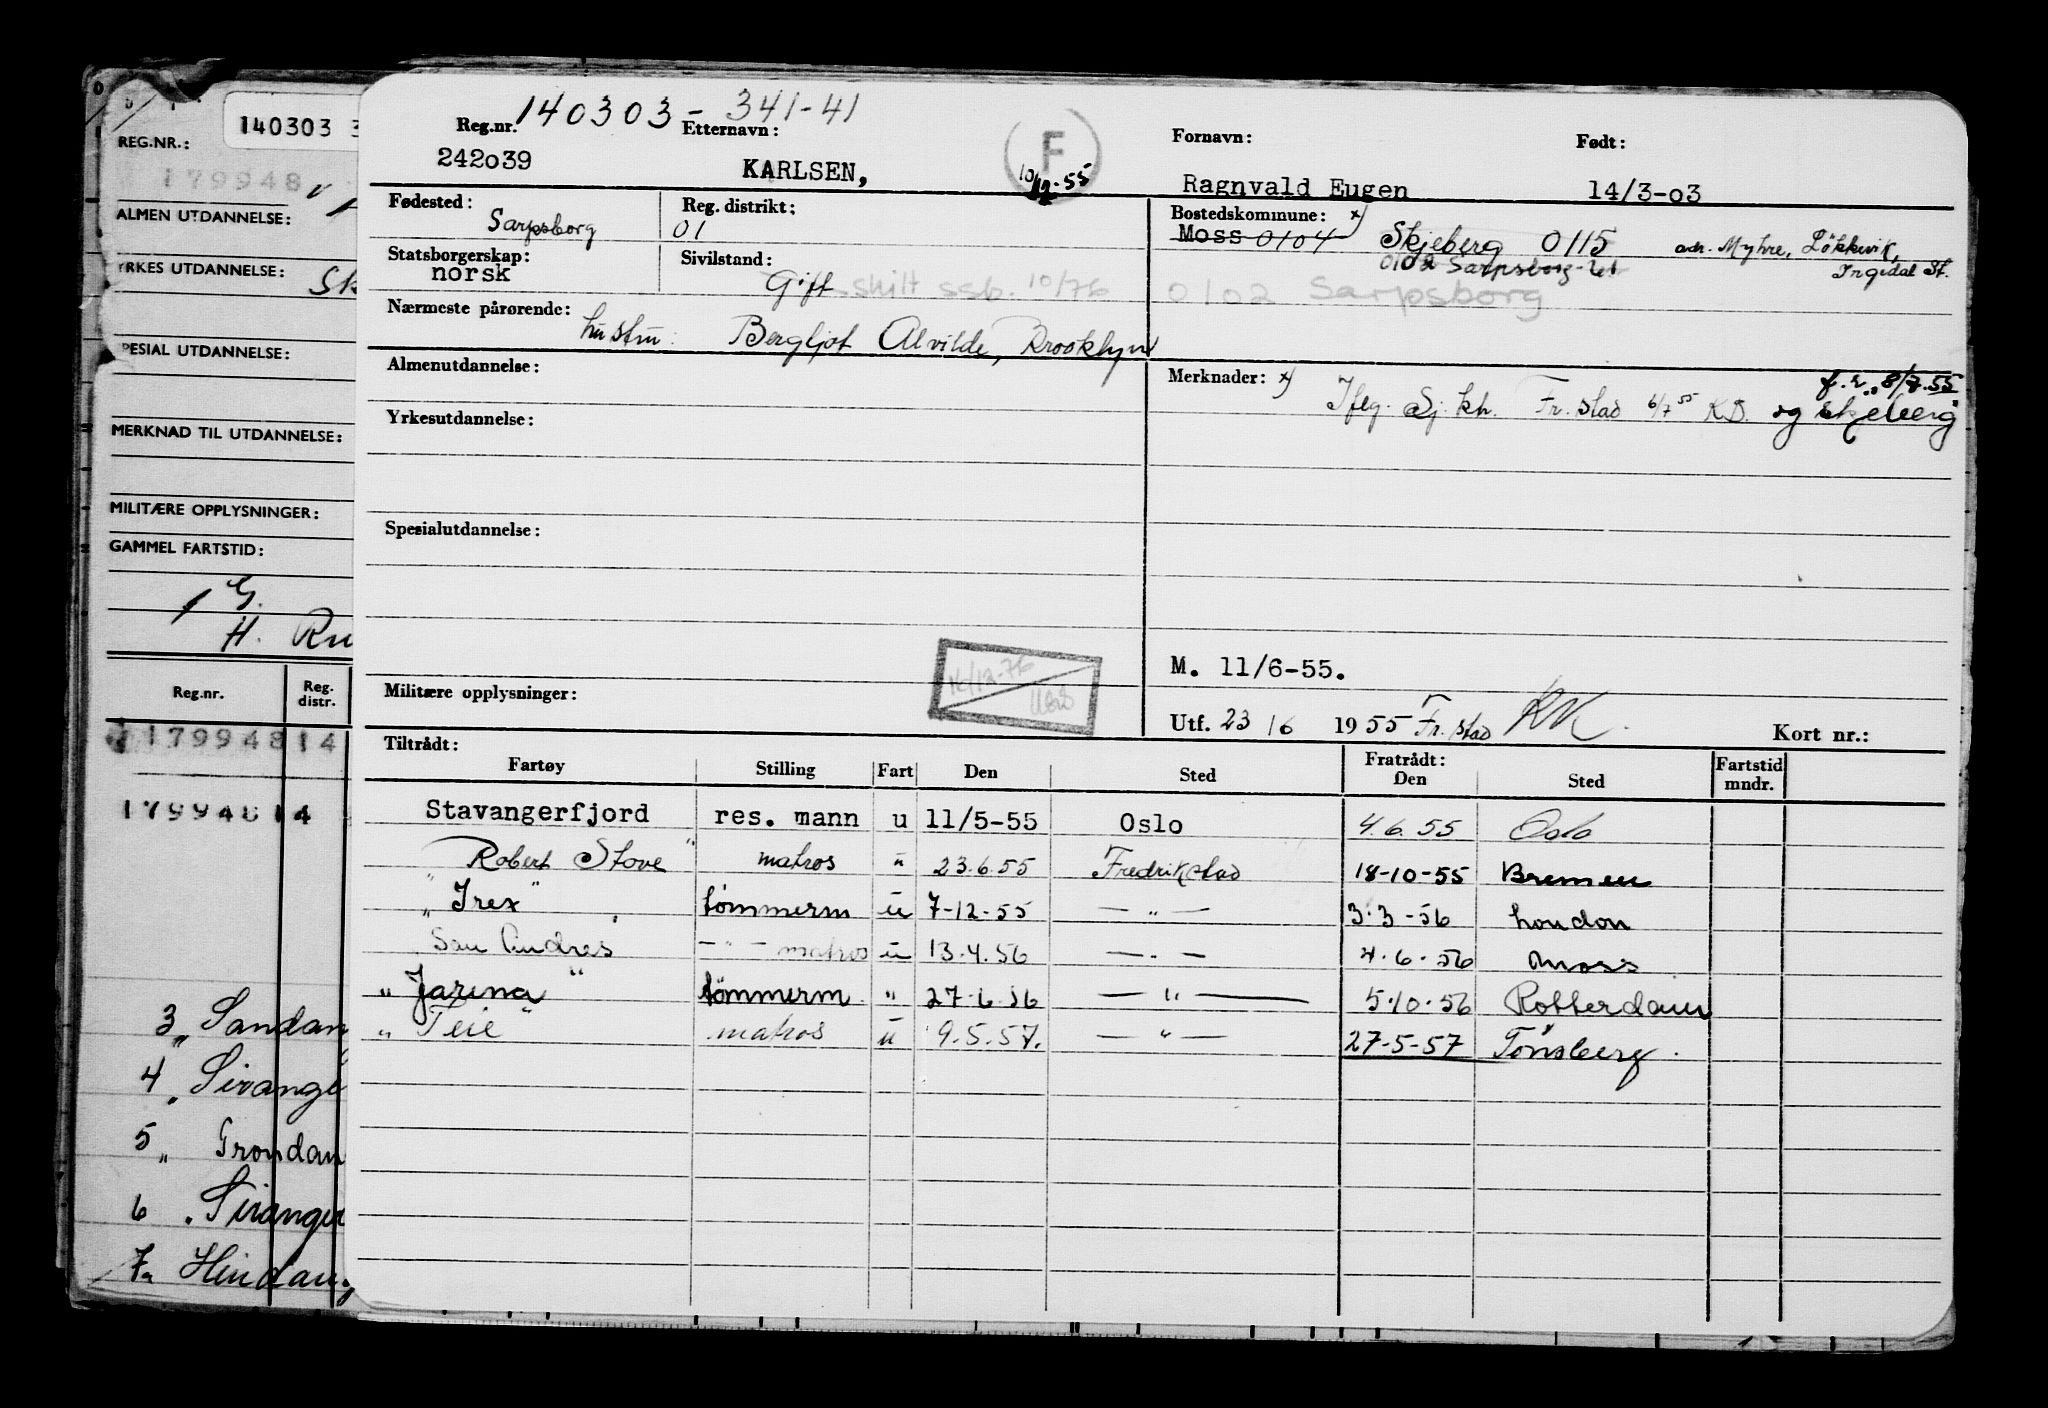 REG.NR.:
140303 3
179948
ALMEN UTDANNELSE:
YRKES UTDANNELSE: Sk
SPESIAL UTDANNELSE:
MERKNAD TIL UTDANNELSE:
MILITÆRE OPPLYSNINGER:
GAMMEL FARTSTID:
1 G.
H. Ru
Reg.nr. Reg. distr.
179948 14
179948 14
3 „ Sandan
4 „ Siranger
5 „ Grondan
6 „ Siranger
7 „ Hindang
Reg.nr. 140303-341-41
242o39
Etternavn:
KARLSEN,
F
10/12-55
Fornavn:
Ragnvald Eugen
Født:
14/3-o3
Fødested: Sarpsborg
Reg. distrikt: 01
Bostedskommune: x)
Moss 0104 Skjeberg 0115 adr. Myhre, Løkkevik,
0102 Sarpsborg Ingedal St.
0102 Sarpsborg
Statsborgerskap:
norsk
Sivilstand:
Gift skilt ssb. 10/76
Nærmeste pårørende: hustru: Bergljot Alvilde, Brooklyn
Almenutdannelse:
Yrkesutdannelse:
Spesialutdannelse:
Militære opplysninger:
Merknader: x) Iflg. Sj.kh. Fr.stad 6/7 55 K.D. og Skjeberg
f.r. 8/7.55
M. 11/6-55.
Utf. 23/6 1955 Fr.stad RK.
Kort nr.:
Tiltrådt: Fratrådt:
Fartøy Stilling Fart Den Sted Den Sted Fartstid mndr.
Stavangerfjord res. mann u 11/5-55 Oslo 4.6.55 Oslo
„ Robert Stove " matros u 23.6.55 Fredrikstad 18-10-55 Bremen
„ Irex " tømmerm u 7-12-55 — „ — 3-3-56 London
San Andres — " — matros u 13.4.56 — „ — 4-6-56 Moss
„ Jarina " tømmerm „ 27-6-56 — „ — 5-10-56 Rotterdam
„ Teie " matros u 9.5.57. — „ — 27-5-57 Tønsberg.